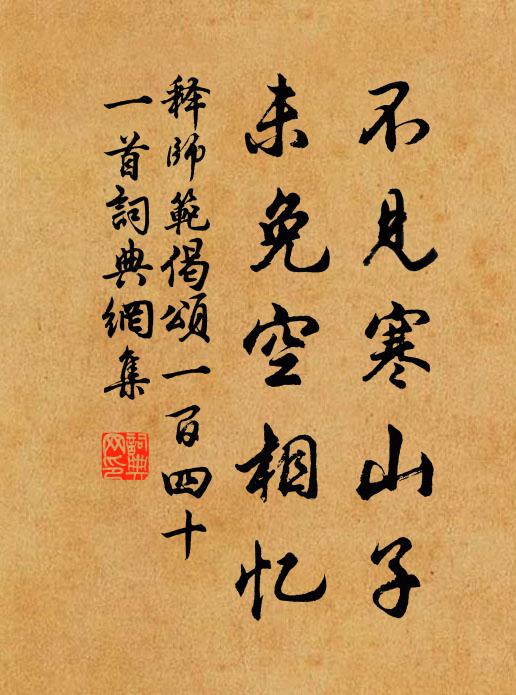 不见寒山子
未免空相忆
释师範偈颂一百四十
一首詞典網集
詞典
网印